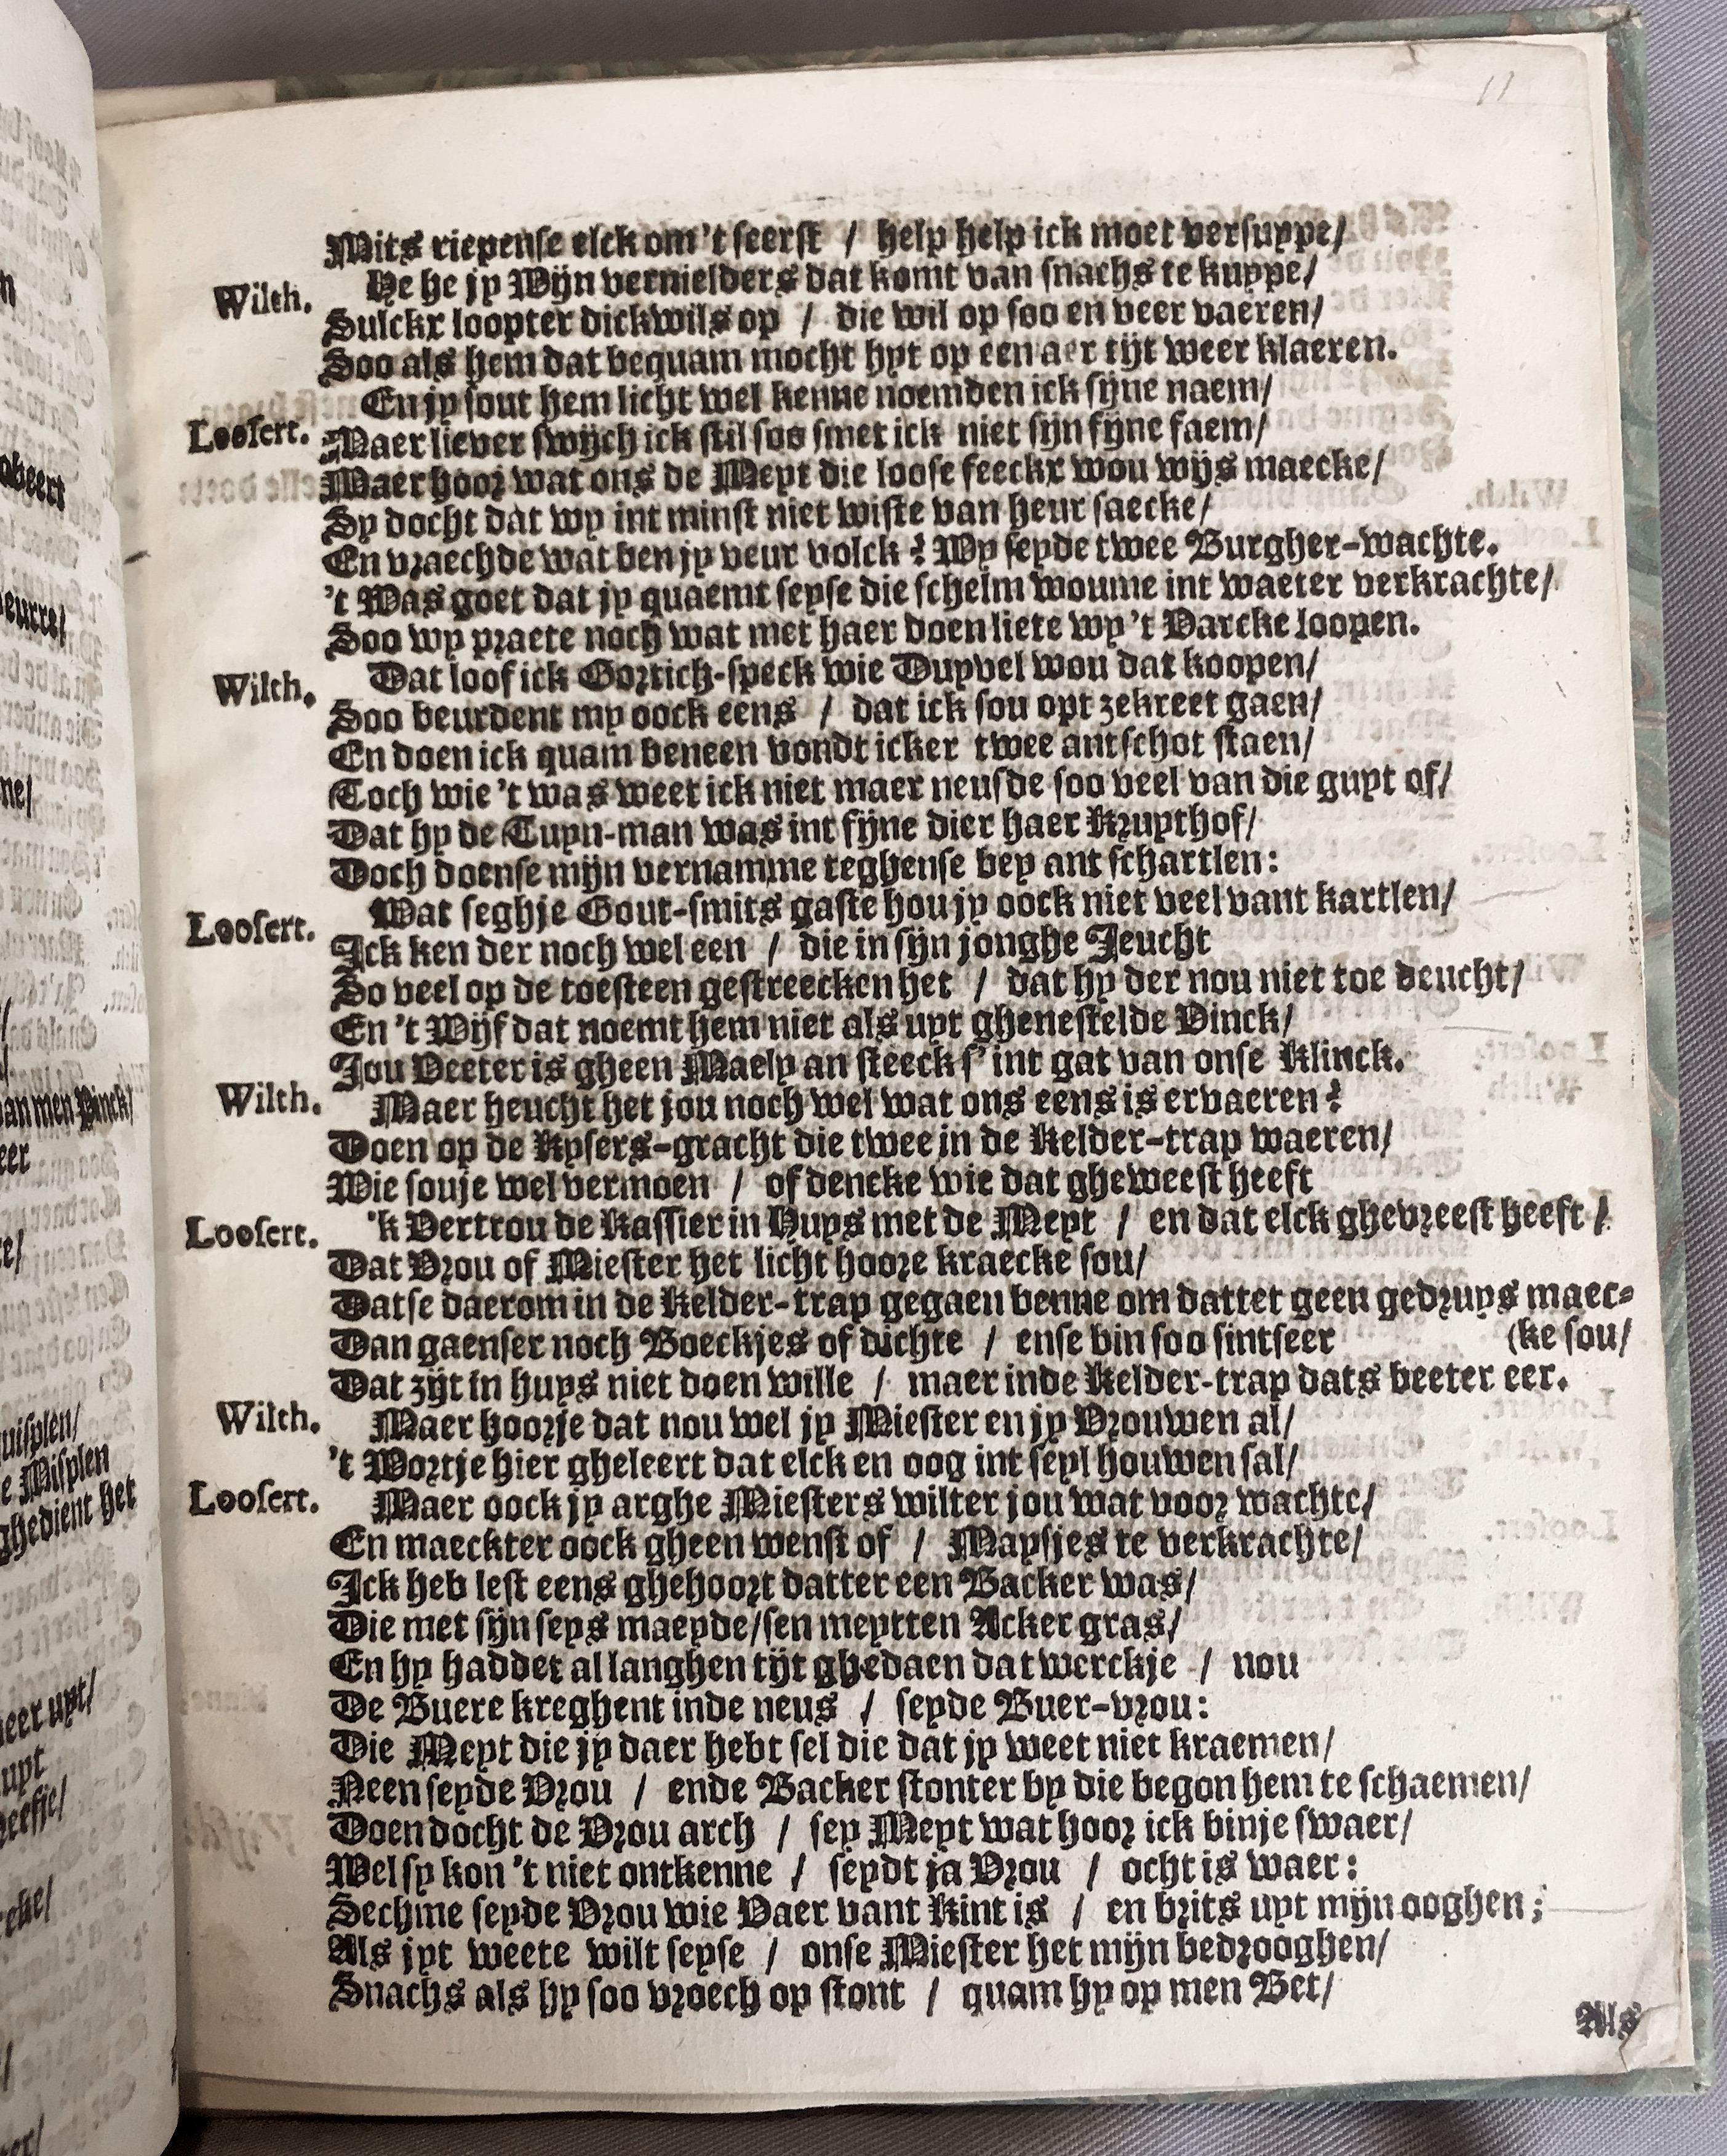 11
Mits riepense elck om 't seerst / help help ick moet versuype/
Wilth. He he jy Wijn vernielders dat komt van snachs te kuype/
Sulckx loopter dickwils op / die wil op soo en veer vaeren/
Soo als hem dat bequam mocht hyt op een aer tijt weer klaeren.
Loosert. En jy sout hem licht wel kenne noemden ick sijne naem/
Maer liever swijch ick stil soo smet ick niet sijn fijne faem/
Maer hoor wat ons de Meyt die loose feeckx wou wijs maecke/
Sy docht dat wy int minst niet wiste van heur saecke/
En vraechde wat ben jy veur volck? Wy seyde twee Burgher-wachte.
't Was goet dat jy quaemt seyse die schelm woume int waeter verkrachte/
Soo wy praete noch wat met haer doen liete wy 't Varcke loopen.
Wilth. Dat loof ick Gortich-speck wie Duyvel wou dat koopen/
Soo beurdent my oock eens / dat ick sou opt zekreet gaen/
En doen ick quam beneen vondt icker twee ant schot staen/
Toch wie 't was weet ick niet maer neusde soo veel van die guyt of/
Dat hy de Tuyn-man was int fijne dier haer Kruythof/
Doch doense mijn vernamme teghense bey ant schartlen:
Loosert. Wat seghje Gout-smits gaste hou jy oock niet veel vant kartlen/
Ick ken der noch wel een / die in sijn jonghe Jeucht
So veel op de toesteen gestreecken het / dat hy der nou niet toe deucht/
En 't Wijf dat noemt hem niet als uyt ghenestelde Vinck/
Jou Veeter is gheen Maely an steeck s' int gat van onse Klinck.
Wilth. Maer heucht het jou noch wel wat ons eens is ervaeren?
Doen op de Kysers-gracht die twee in de Kelder-trap waeren/
Wie souje wel vermoen / of dencke wie dat gheweest heeft
Loosert. 'k Vertrou de Kassier in Huys met de Meyt / en dat elck ghevreest heeft /
Dat Vrou of Miester het licht hoore kraecke sou/
Datse daerom in de Kelder-trap gegaen benne om dattet geen gedruys maec-
Dan gaenser noch Boeckjes of dichte / ense bin soo sintseer (ke sou/
Dat zijt in huys niet doen wille / maer inde Kelder-trap dats beeter eer.
Wilth. Maer hoorje dat nou wel jy Miester en jy Vrouwen al/
't Wortje hier gheleert dat elck en oog int seyl houwen sal/
Loosert. Maer oock jy arghe Miesters wilter jou wat voor wachte/
En maeckter oock gheen wenst of / Maysjes te verkrachte/
Ick heb lest eens ghehoort datter een Backer was/
Die met sijn seys maeyde/sen meytten Acker gras/
En hy haddet al langhen tijt ghedaen dat werckje / nou
De Buere kreghent inde neus / seyde Buer-vrou:
Die Meyt die jy daer hebt sel die dat jy weet niet kraemen/
Neen seyde Vrou / ende Backer stonter by die begon hem te schaemen/
Doen docht de Vrou arch / sey Meyt wat hoor ick binje swaer/
Wel sy kon 't niet ontkenne / seydt ja Vrou / ocht is waer:
Sechme seyde Vrou wie Vaer vant Kint is / en brits uyt mijn ooghen;
Als jyt weete wilt seyse / onse Miester het mijn bedrooghen/
Snachs als hy soo vroech op stont / quam hy op men Bet/
Als